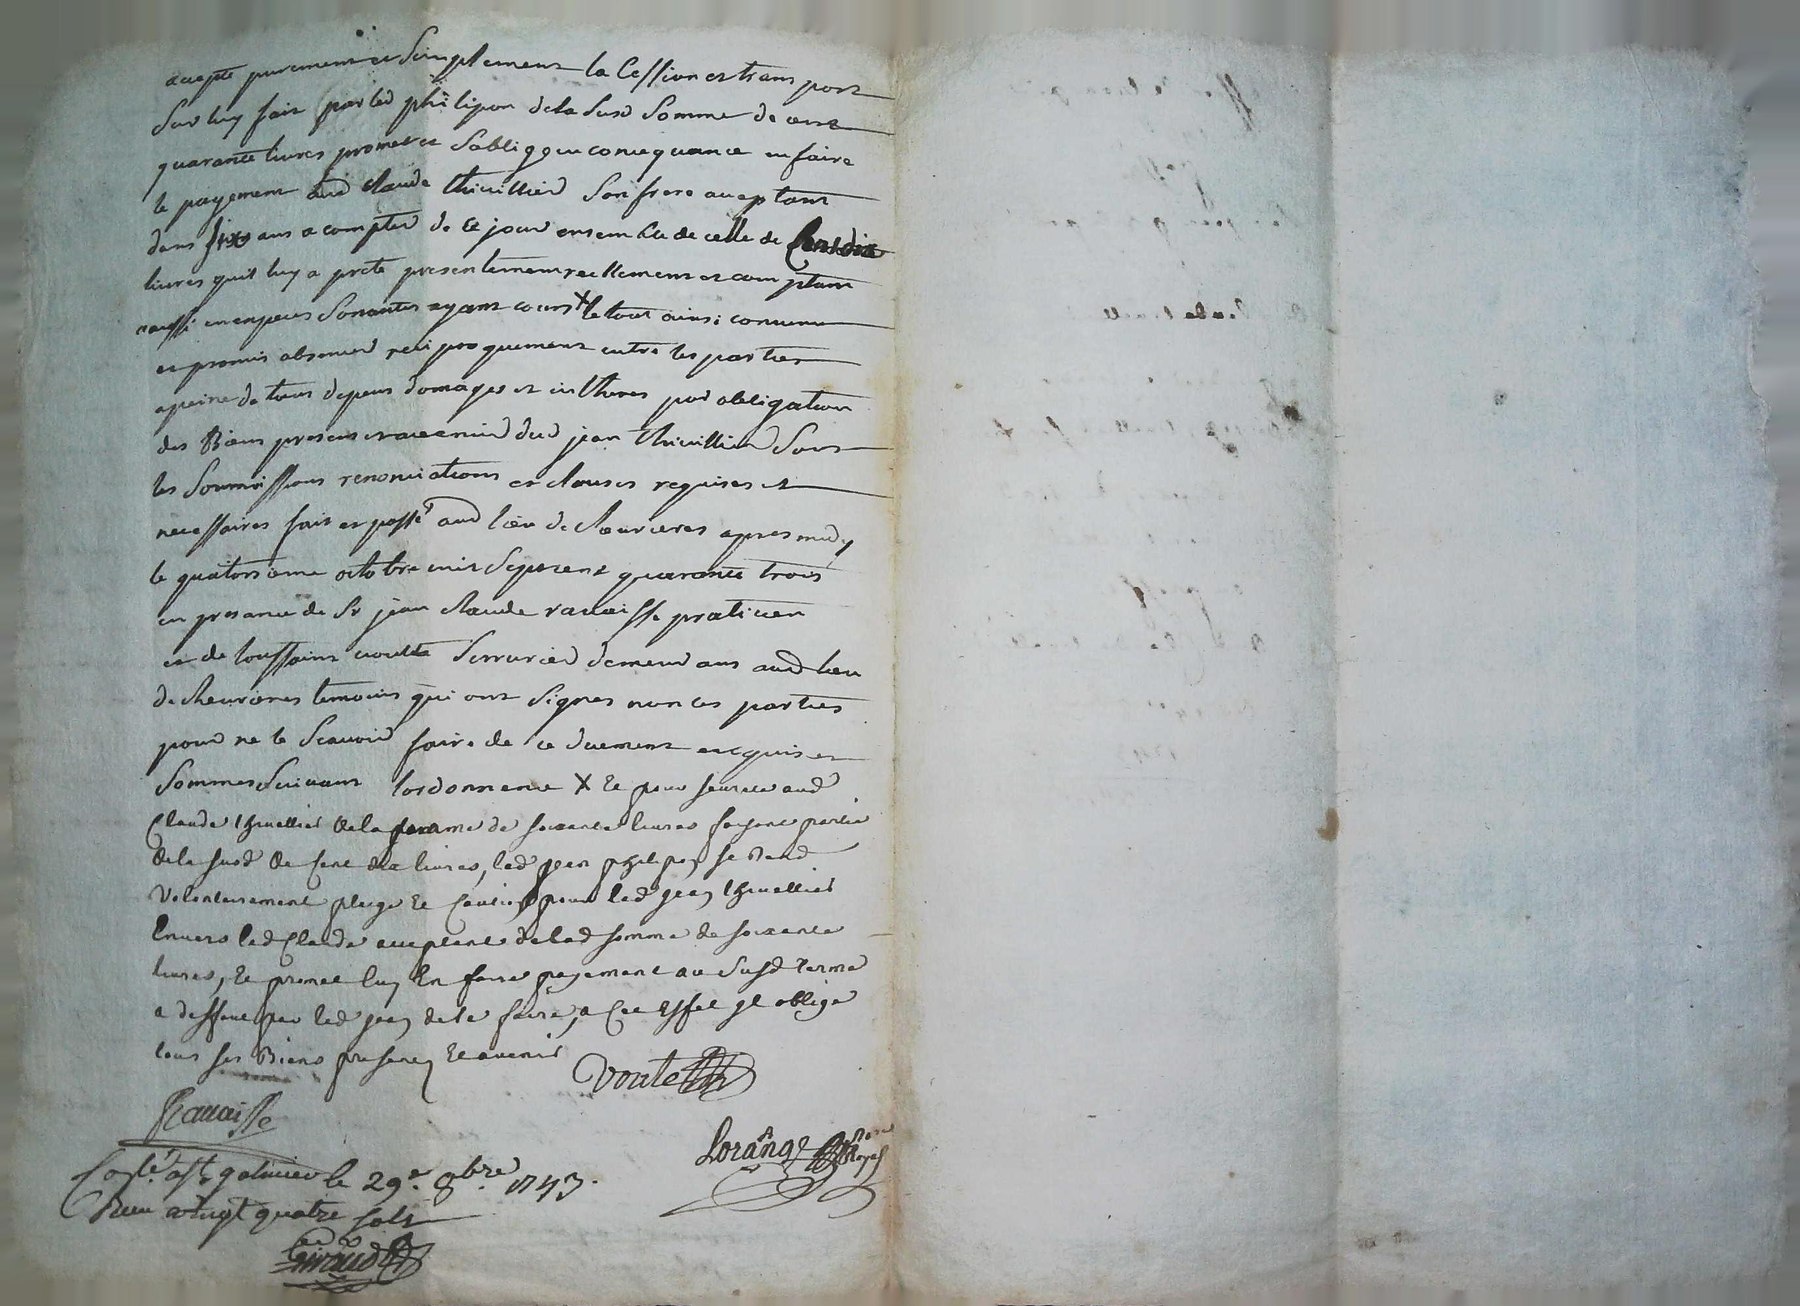 accepte purement et simplement la Cession et transport
Sur luy fait par led philipon dela susd Somme de cent
quarante livres promet et Soblige en consequance en faire
le payement aud claude thivillier Son frere acceptant
dans six ans a compter de ce jour ensemble de celle de Cent dix
livres quil luy a preté presentement reellement et comptant
aussi en especes Sonantes ayant cours X le tout ainsi convenu
et promis observer reciproquement entre les parties
a peine de tous depens domages et intherets par obligation
des Biens presens et avenir dud jean thivillier Sous
les Soumissions renonciations et clauses requises et
necessaires fait et passé aud lieu de chevrieres apres midy
le quatorsieme octobre mil Septcent quarante trois
en presance de Sr jean claude ravaisse praticien
et de toussaint voulte Serrurier demeurans aud lieu
de chevrieres temoins qui ont Signes non les parties
pour ne le Scavoir faire de ce duement enquis et
Sommes Suivant lordonnance X Et pour seurete aud
Claude thivellier dela somme de soixante livres faisant partie
dela susd de Cent dix livres, led jean philipon se Rend
Volontairement pleige Et Caution pour led jean thivellier
Envers led Claude acceptant delad somme de soixante
livres, Et promet luy En faire payement au Susd terme
a deffaut par led jean dele faire, a Cet Effet Il oblige
tous ses Biens presens Et avenir
Voulte
Ravaisse
Lorange Nore Royal
Conlé a St galmier le 29e 8bre 1743.
Receu vingt quatre sols
Giraud